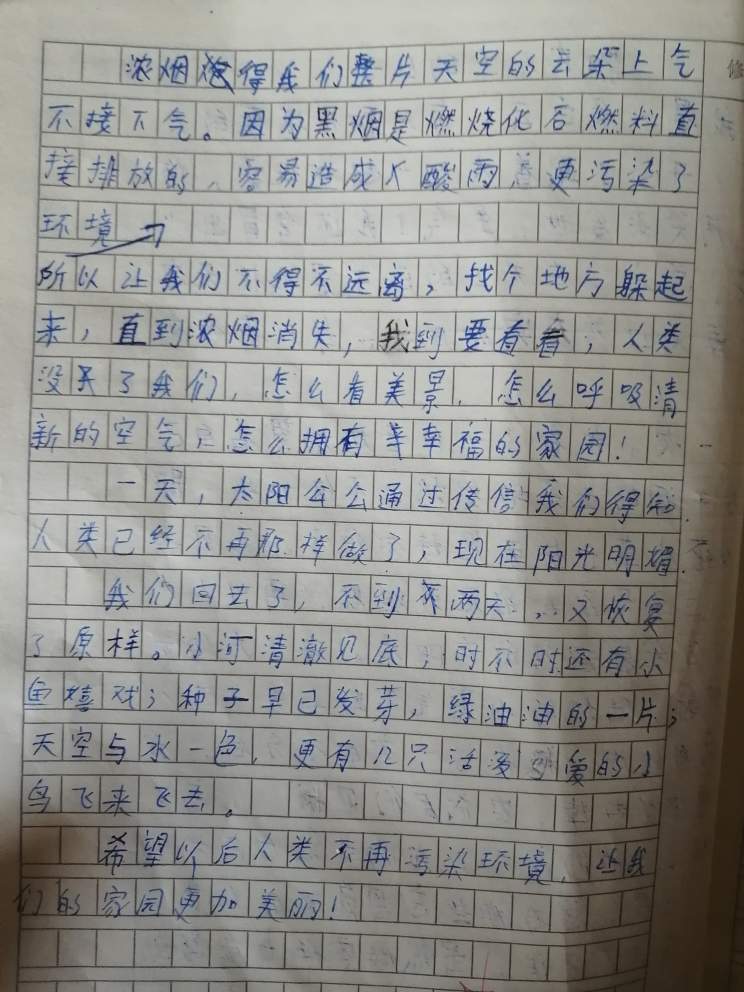 浓烟得我们整片天空的云染上气
不接下气。因为黑烟是燃烧化石燃料直
接排放的，容易造成酸雨，更污染了
环境
所以让我们不得不远离，找个地方躲起
来，直到浓烟消失，我到要看看，人类
没了我们，怎么看美景，怎么呼吸清
新的空气，怎么拥有幸福的家园！
一天，太阳公公通过传信我们得知
人类已经不再那样做了，现在阳光明媚
我们回去了，不到两天，又恢复
了原样。小河清澈见底，时不时还有小
鱼嬉戏；种子早已发芽，绿油油的一片；
天空与水一色，更有几只活泼可爱的小
鸟飞来飞去。
希望以后人类不再污染环境，让我
们的家园更加美丽！